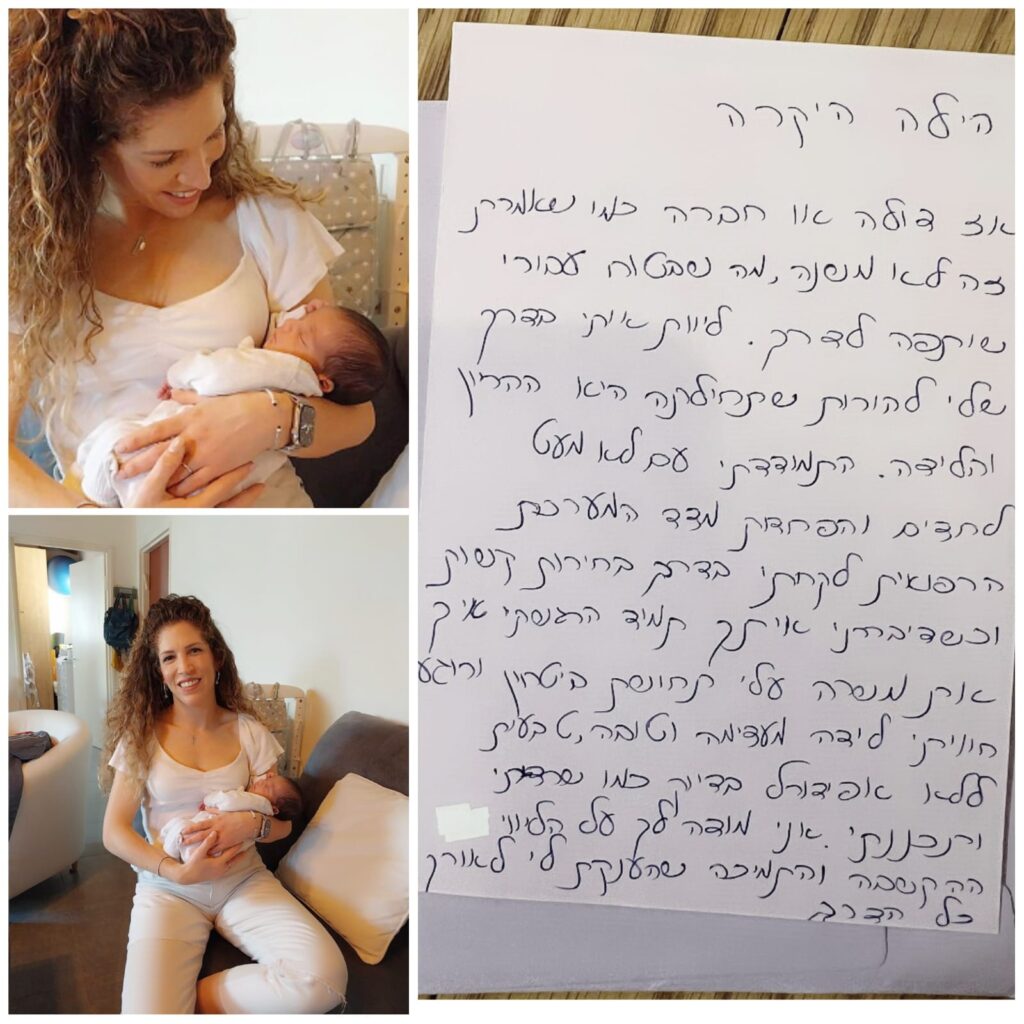 הילה היקרה
אז דולה או חברה כמו שאמרת
זה לא משנה, מה שבטוח עבורי
שותפה לדרך. ליוות איתי בדרך
שלי להורות שתחילתה היא ההריון
והלידה. התמודדתי עם לא מעט
לחצים והפחדות מצד המערכת
הרפואית לקחתי בדרך בחירות קשות
וכשדיברתי איתך תמיד הרגשתי איך
את משרה עלי תחושת ביטחון ורוגע
חוויתי לידה מעצימה וטובה, טבעית
ללא אפידורל בדיוק כמו שרציתי
ותכננתי. אני מודה לך על הליווי
ההקשבה והתמיכה שהענקת לי לאורך
כל הדרך